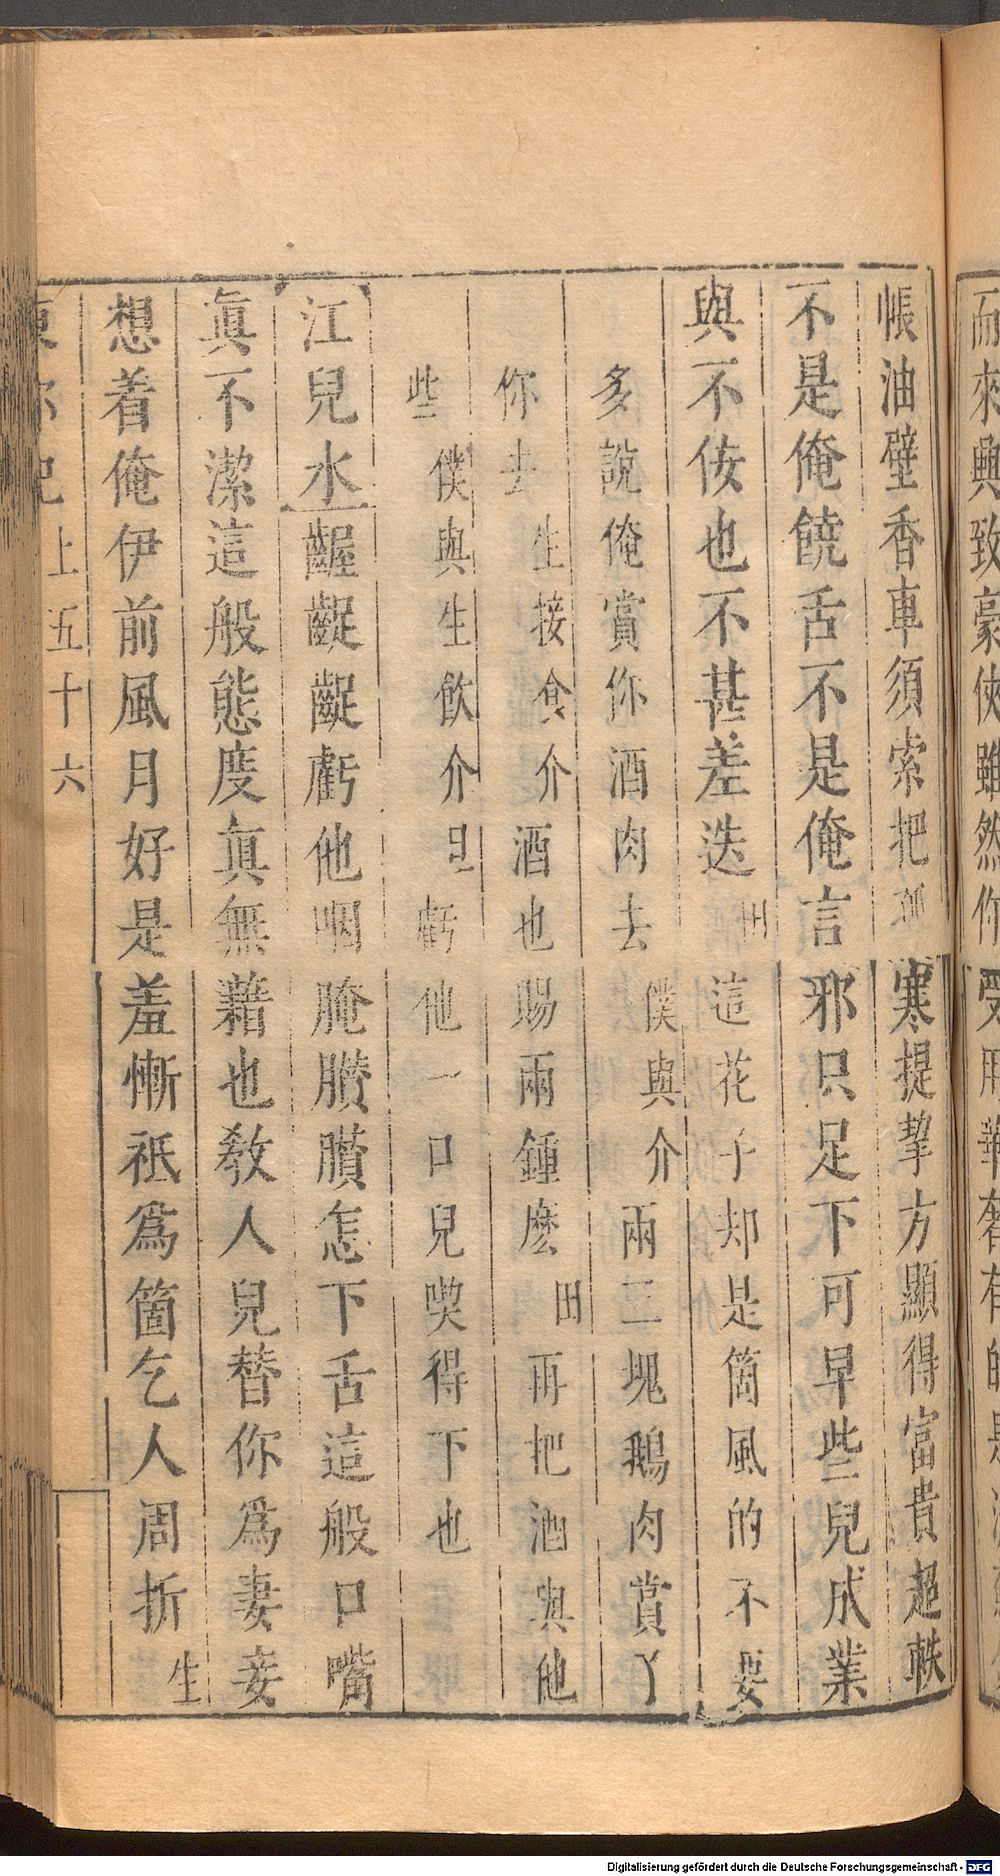 而來興致豪俠雖然你受用華奢有的是
帳油壁香車須索把孤寒提挈方顯得富貴超軼
不是俺饒舌不是俺言邪只足下可早些兒成業
與不侒也不甚差迭 田 這花子却是箇風的不要
多說俺賞你酒肉去 僕與介 兩三塊鵝肉賞丫
你去 生接食介 酒也賜兩鍾麽 田 再把酒與他
些 僕與生飲介 旦 虧他一口兒喫得下也
江兒水 齷齪齪虧他咽腌臢臢怎下舌這般口嘴
眞不潔這般態度眞無藉也教人兒替你爲妻妾
想着俺伊前風月好是羞慚祗爲箇乞人周折 生
東郭記 上 五十六
Digitalisierung gefördert durch die Deutsche Forschungsgemeinschaft - DFG